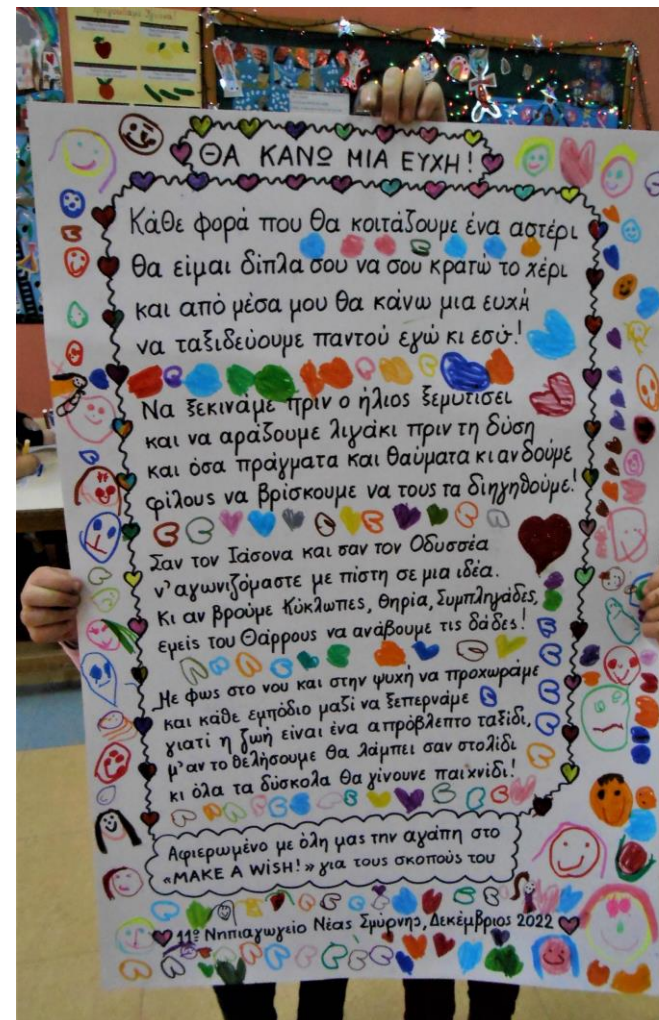 ΘΑ ΚΑΝΩ ΜΙΑ ΕΥΧΗ!
Κάθε φορά που θα κοιτάζουμε ένα αστέρι
θα είμαι δίπλα σου να σου κρατώ το χέρι
και από μέσα μου θα κάνω μια ευχή
να ταξιδεύουμε παντού εγώ κι εσύ!
Να ξεκινάμε πριν ο ήλιος ξεμυτίσει
και να αράζουμε λιγάκι πριν τη δύση
και όσα πράγματα και θαύματα κι αν δούμε
φίλους να βρίσκουμε να τους τα διηγηθούμε!
Σαν τον Ιάσονα και σαν τον Οδυσσέα
ν' αγωνιζόμαστε με πίστη σε μια ιδέα.
Κι αν βρούμε Κύκλωπες, θηρία, Συμπληγάδες,
εμείς του θάρρους να ανάβουμε τις δάδες!
Με φως στο νου και στην ψυχή να προχωράμε
και κάθε εμπόδιο μαζί να ξεπερνάμε
γιατί η ζωή είναι ένα απρόβλεπτο ταξίδι,
μ' αν το θελήσουμε θα λάμπει σαν στολίδι
κι όλα τα δύσκολα θα γίνουνε παιχνίδι!
Αφιερωμένο με όλη μας την αγάπη στο
«MAKE A WiSH!» για τους σκοπούς του
11ο Νηπιαγωγείο Νέας Σμύρνης, Δεκέμβριος 2022